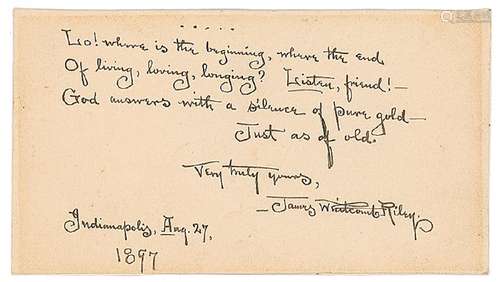 . . . . .
Lo! where is the beginning, where the end
Of living, loving, longing? Listen, friend!—
God answers with a silence of pure gold—
Just as of old.
Very truly yours,
—James Whitcomb Riley.
Indianapolis, Aug. 27,
1897